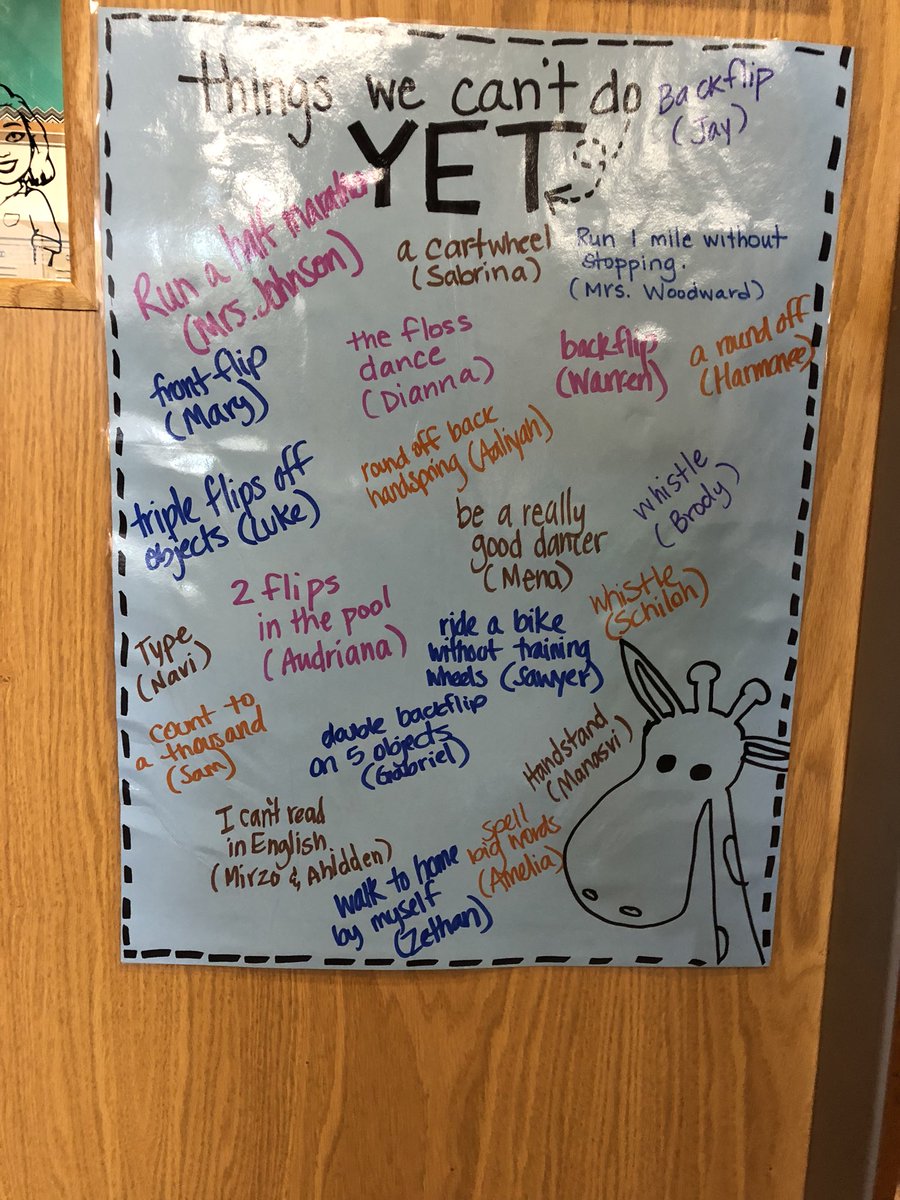 things we can't do
YET
Backflip
(Jay)
Run a half marathon
(Mrs. Johnson)
a cartwheel
(Sabrina)
Run 1 mile without
stopping.
(Mrs. Woodward)
front flip
(Mary)
the floss
dance
(Dianna)
backflip
(Warren)
a round off
(Harmonee)
round off back
handspring (Aaliyah)
triple flips off
objects (Luke)
be a really
good dancer
(Mena)
whistle
(Brody)
2 flips
in the pool
(Audriana)
whistle
(Schiloh)
Type
(Navi)
ride a bike
without training
wheels (Sawyer)
count to
a thousand
(Sam)
double backflip
on 5 objects
(Gabriel)
Handstand
(Manasvi)
I can't read
in English.
(Mirzo & Ahldden)
spell
big words
(Amelia)
walk to home
by myself
(Zethan)